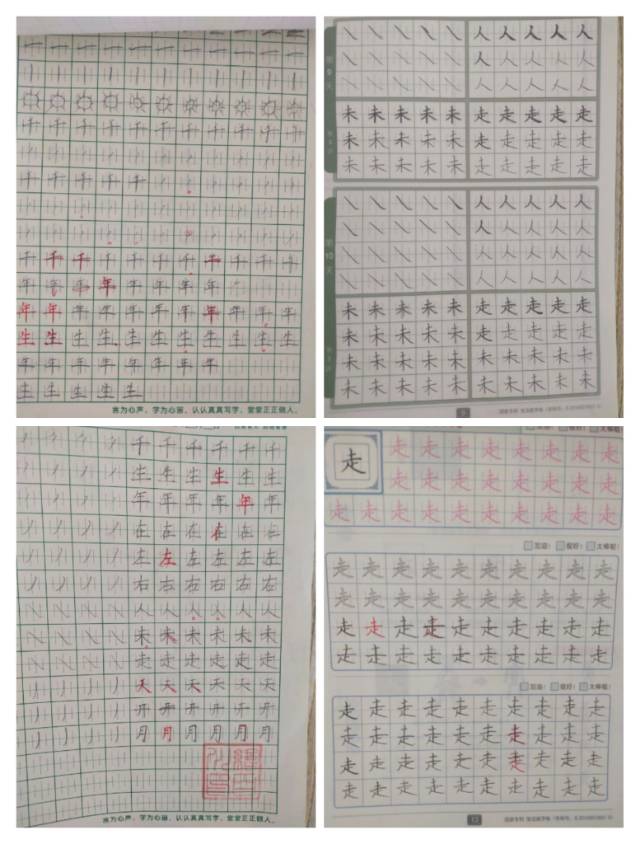 一 一 一 一 一 一 一 一 一 一 一
千 千 千 千 千 千 千 千 千 千 千
千 千 千 千 千
千 千 千 千 千 千 千 千 千 千 千
年 年 年 年 年 年 年 年
年 年 年 年 年 年 年 年 年 年 年
生 生 生 生 生 生 生 生 生 生 生
年 年 年 年 年 年 年 年
生 生 生 生 生
言为心声，字为心画，认认真真写字，堂堂正正做人。
第9天
人 人 人 人 人
人 人 人 人 人
人 人 人 人 人
未 未 未 未 未 走 走 走 走 走
未 未 未 未 未 走 走 走 走 走
未 未 未 未 未 走 走 走 走 走
第10天
人 人 人 人 人
人 人 人 人 人
人 人 人 人 人
人 人 人 人 人
未 未 未 未 未 走 走 走 走 走
未 未 未 未 未 走 走 走 走 走
未 未 未 未 未 未 未 未 未 未
未 未 未 未 未 未 未 未 未 未
千 千 千 千 千 千
生 生 生 生 生 生
年 年 年 年 年 年
在 在 在 在 在 在
左 左 左 左 左 左
右 右 右 右 右 右
人 人 人 人 人 人
未 未 未 未 未 未
走 走 走 走 走 走
天 天 天 天 天 天
开 开 开 开 开 开
月 月 月 月 月 月
言为心声，字为心画，认认真真写字，堂堂正正做人。
走
走 走 走 走 走 走 走 走
走 走 走 走 走 走 走 走
走 走 走 走 走 走 走 走 走 走
加油！ 很好！ 太棒啦！
走 走 走 走 走 走 走 走 走 走
走 走 走 走 走 走 走 走 走 走
走 走 走 走 走 走 走 走 走 走
走 走 走 走 走 走 走 走 走 走
加油！ 很好！ 太棒啦！
走 走 走 走 走 走 走 走 走 走
走 走 走 走 走 走 走 走 走 走
走 走 走 走 走 走 走 走 走 走
走 走 走 走 走 走 走 走 走 走